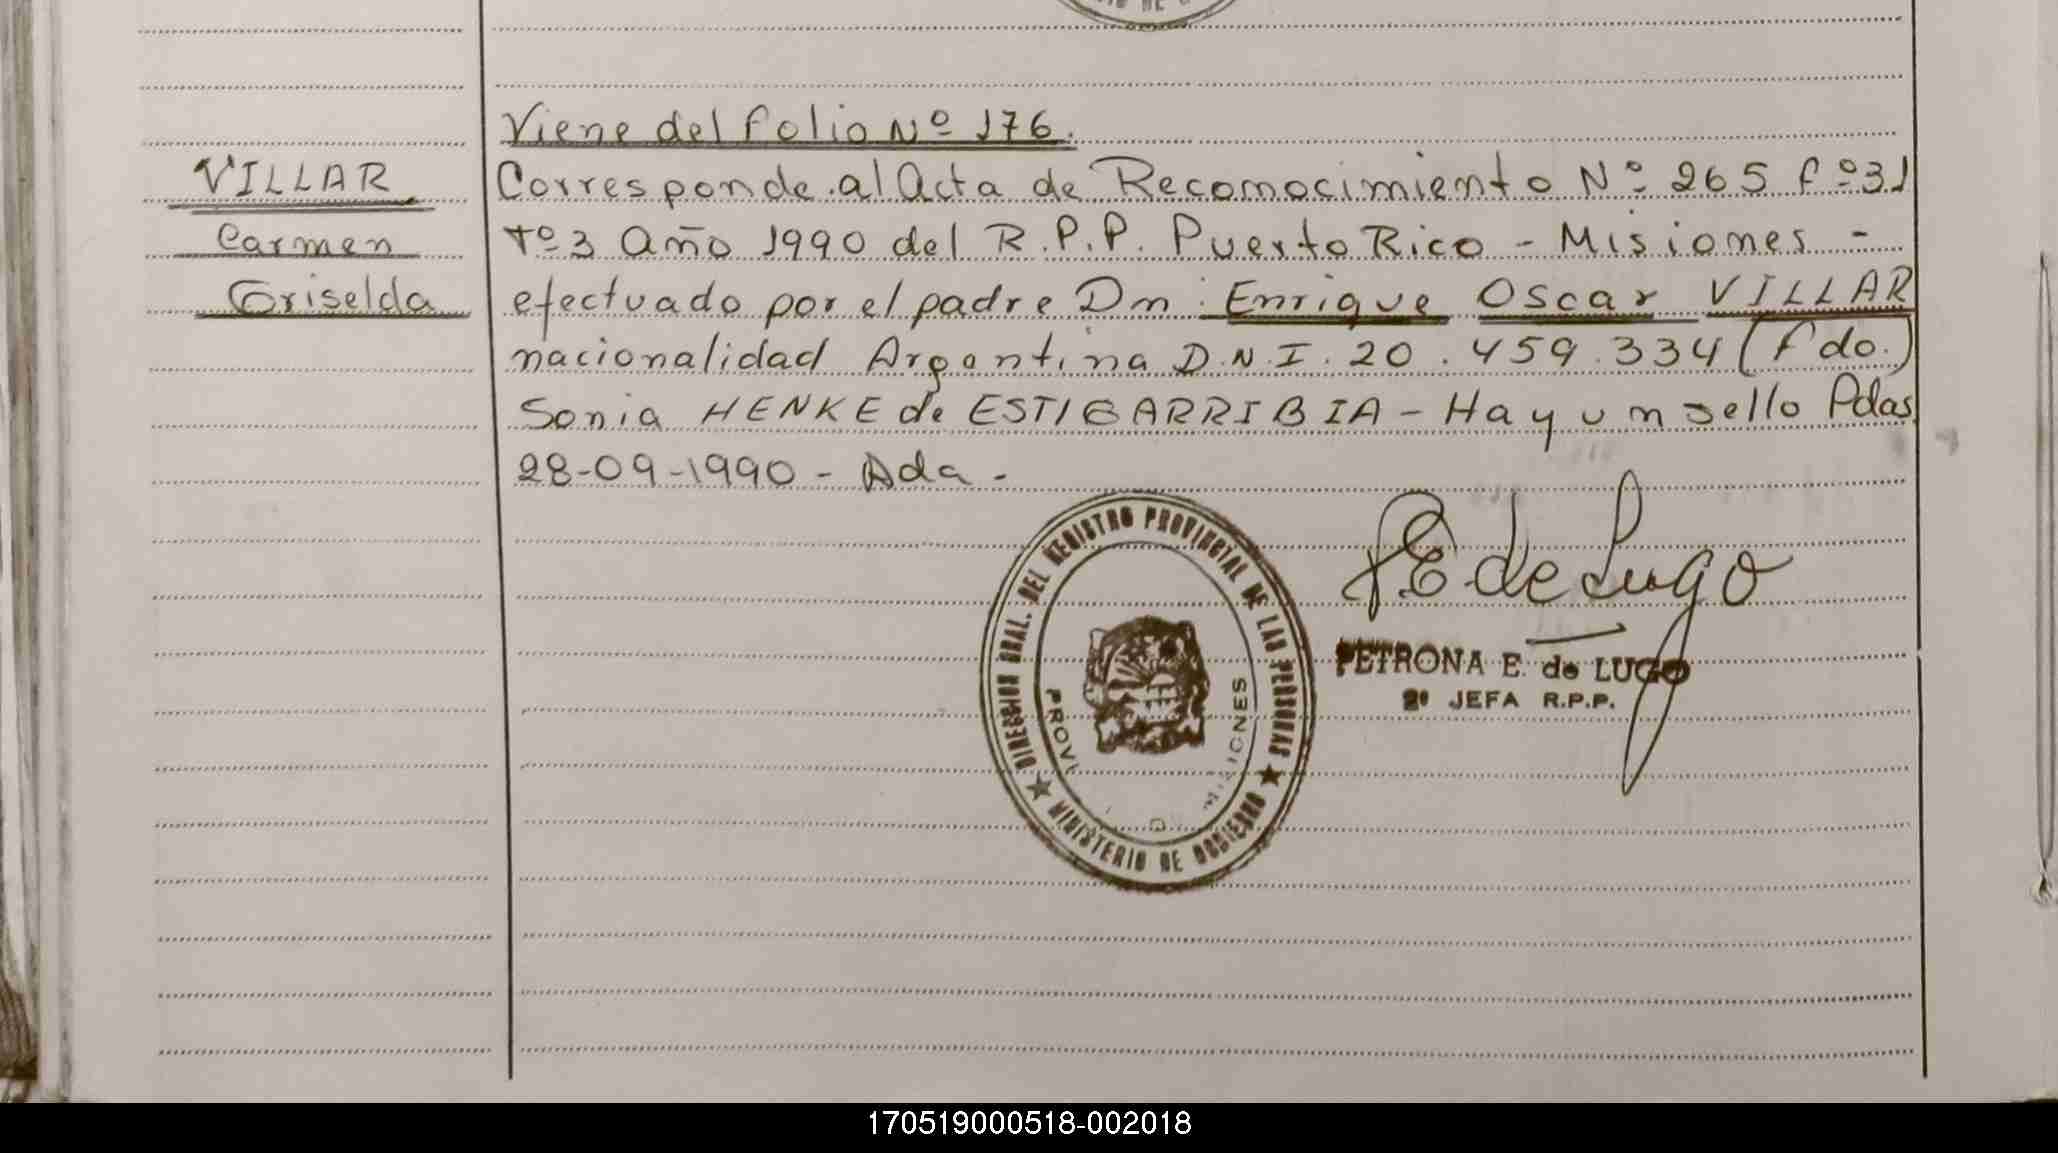 Viene del folio Nº 176.
VILLAR
Carmen
Griselda
Corresponde al Acta de Reconocimiento Nº 265 fº 31
Tº 3 Año 1990 del R.P.P. Puerto Rico - Misiones -
efectuado por el padre Dn. Enrique Oscar VILLAR
nacionalidad Argentina D.N.I. 20.459.334 (fdo.)
Sonia HENKE de ESTIGARRIBIA - Hay un sello Pdas
28-09-1990 - Ada -
P E de Lugo
PETRONA E. de LUGO
2º JEFA R.P.P.
DIRECCION GRAL. DEL REGISTRO PROVINCIAL DE LAS PERSONAS
MINISTERIO DE GOBIERNO
170519000518-002018